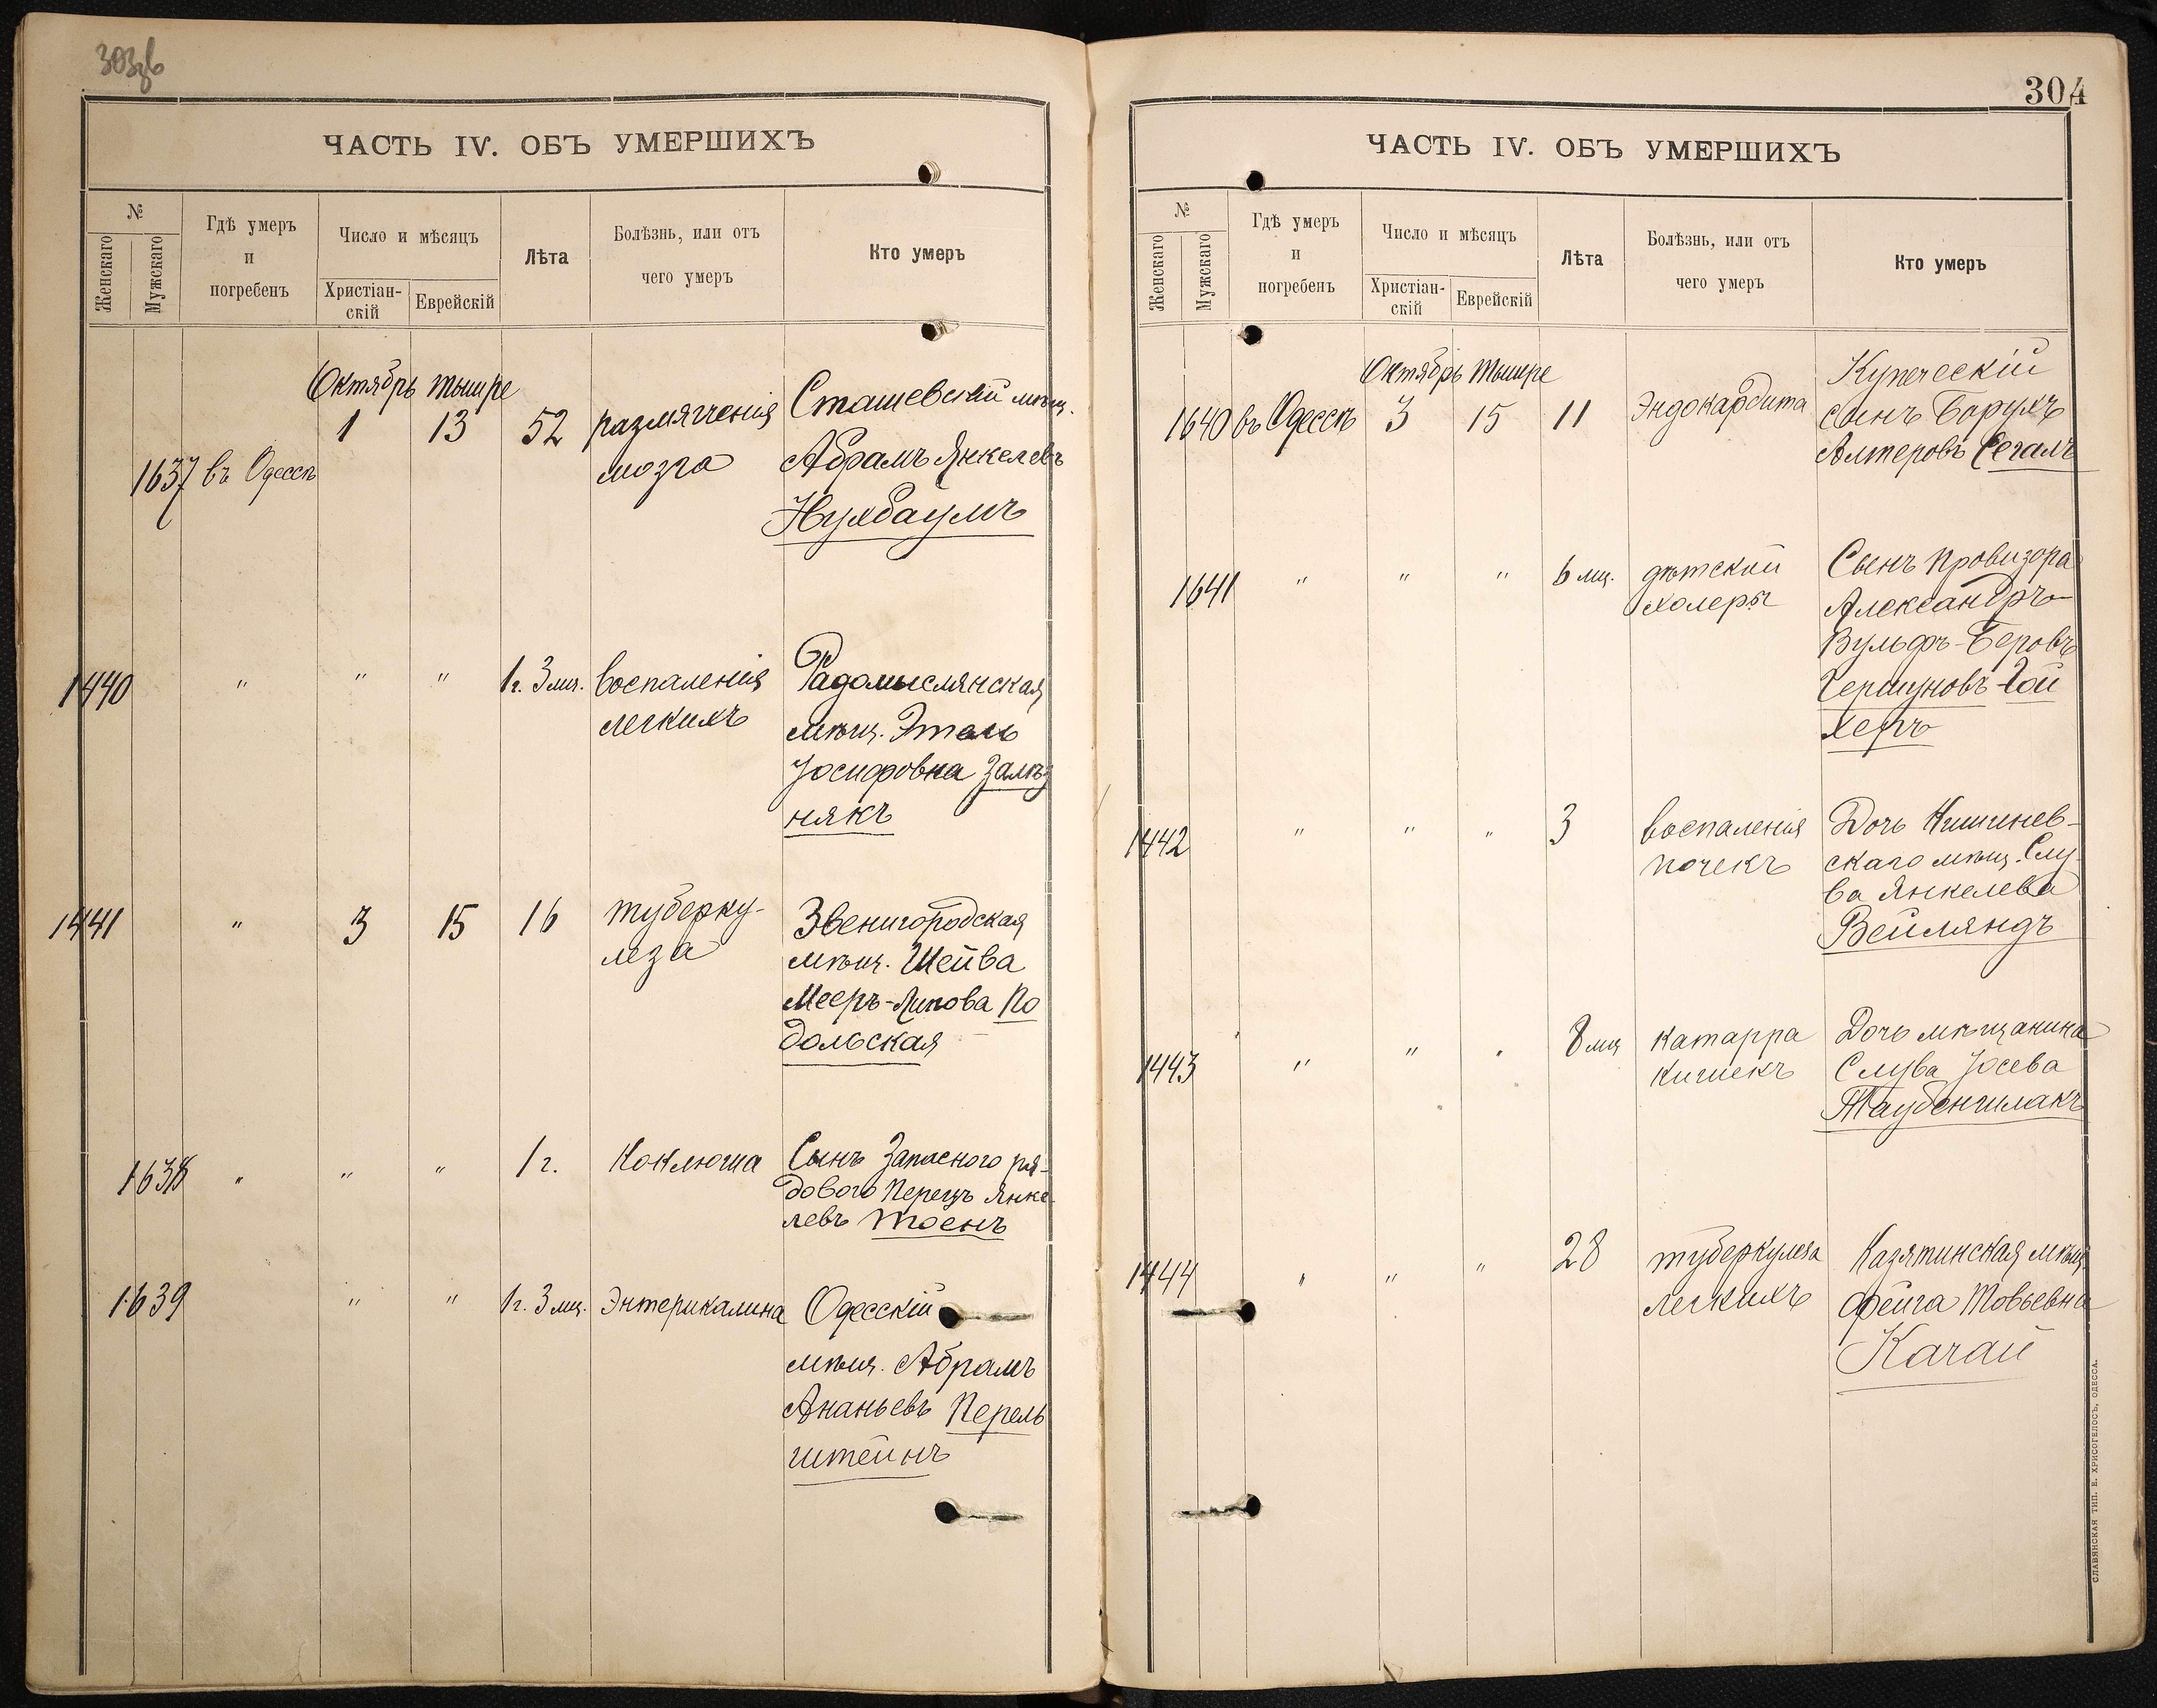 303зв
ЧАСТЬ IV. ОБЪ УМЕРШИХЪ
№
Женскаго
Мужскаго
Гдѣ умеръ
и
погребенъ
Число и мѣсяцъ
Христіан-
скій
Еврейскій
Лѣта
Болѣзнь, или отъ
чего умеръ
Кто умеръ
Октябрь Тышре
1637 въ Одессѣ 1 13 52 размягченія Сташевскій мѣщ.
мозга Абрамъ Янкелевъ
Нухбаумъ
1440 " " " 1г. 3 мц. воспаленія Радомыслянская
легкихъ мѣщ. Этель
Іосифовна Залѣз
някъ
1441 " 3 15 16 туберку- Звенигородская
леза мѣщ. Шейва
Мееръ-Липова По
дольская
1638 " " " 1 г. Коклюша Сынъ Запасного ря-
дового Перецъ Янке-
левъ Тоенъ
1639 " " 1г. 3 мц. Энтерикалина Одесскій
мѣщ. Абрамъ
Ананьевъ Перель
штейнъ
304
ЧАСТЬ IV. ОБЪ УМЕРШИХЪ
№
Женскаго
Мужскаго
Гдѣ умеръ
и
погребенъ
Число и мѣсяцъ
Христіан-
скій
Еврейскій
Лѣта
Болѣзнь, или отъ
чего умеръ
Кто умеръ
Октябрь Тышре
1640 въ Одессѣ 3 15 11 Эндокардита Купеческій
сынъ Борухъ
Алтеровъ Сегалъ
1641 " " " 6 мц. дѣтской Сынъ провизора
холеры Александръ
Вульфъ-Беровъ
Гершуновъ-Гой
херъ
1442 " " " 3 воспаленія Дочь Кишинев-
почекъ скаго мѣщ. Слу-
ва Янкелева
Вейляндъ
1443 " " " 8 мц катарра Дочь мѣщанина
кишекъ Слува Іосева
Таубеншлакъ
1444 " " " 28 туберкулеза Казятинская мѣщ.
легкихъ Фейга Товьевна
Качай
СЛАВЯНСКАЯ ТИП. Е. ХРИСОГЕЛОСЪ, ОДЕССА.